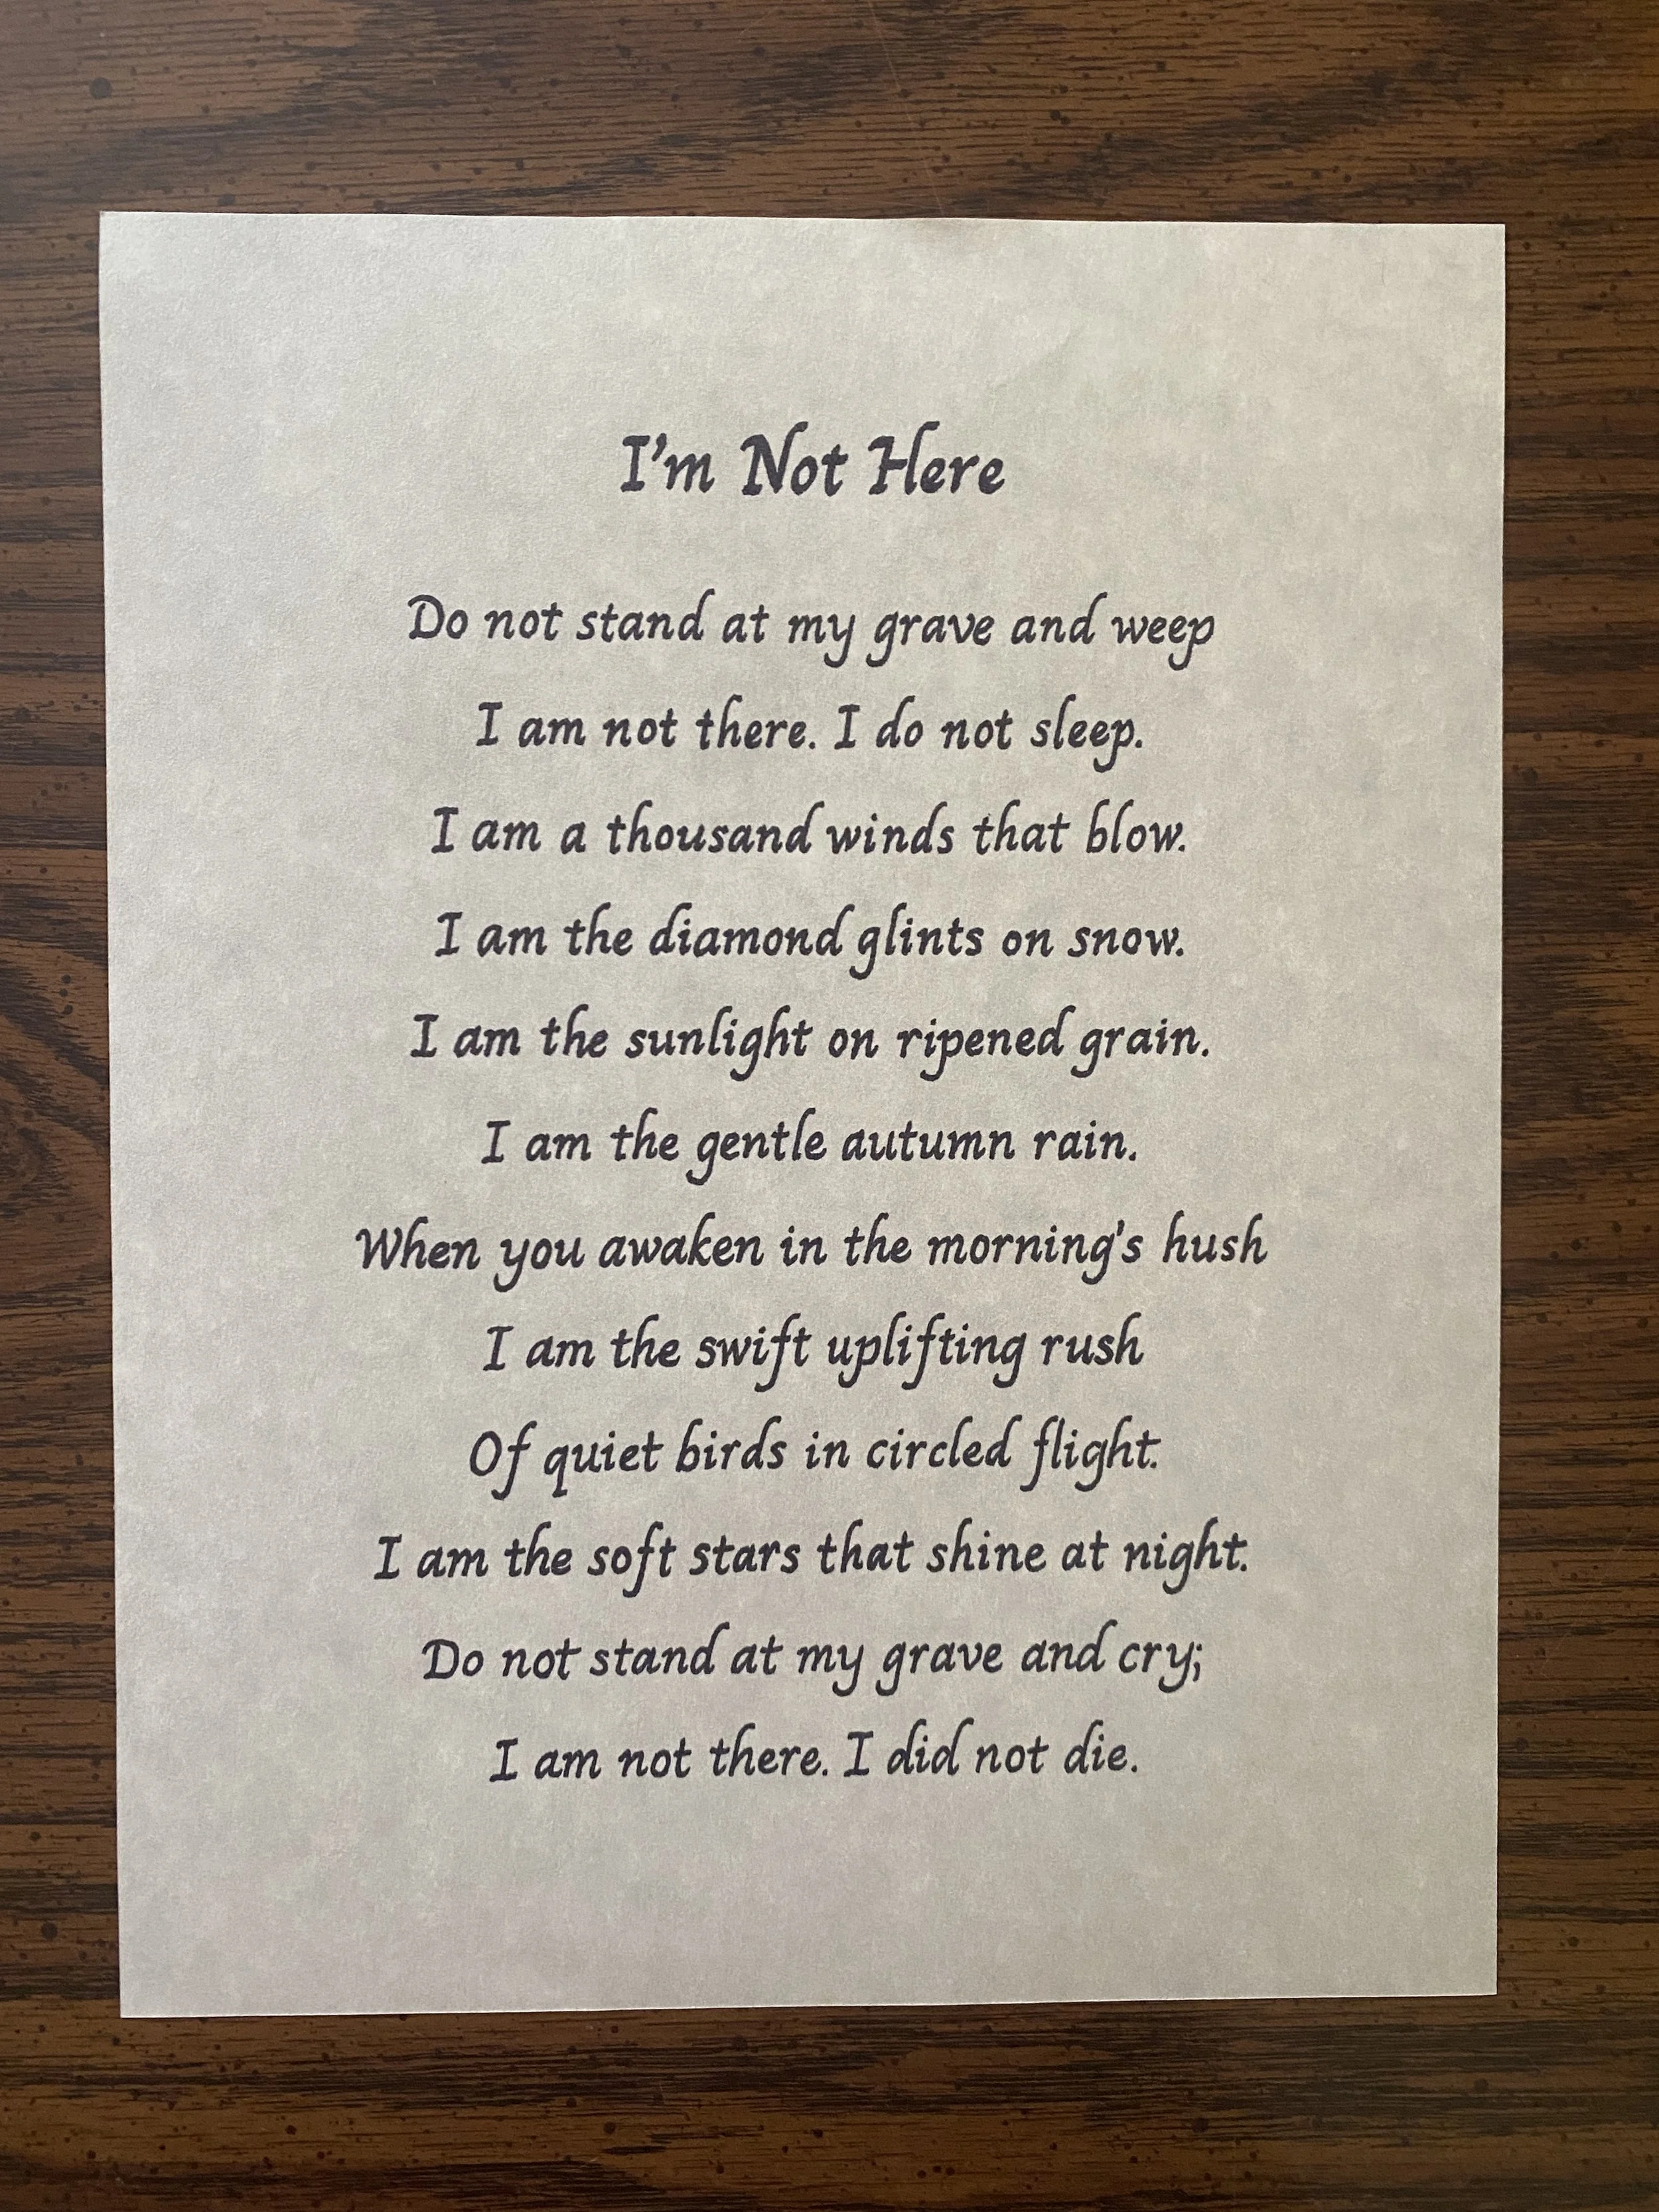 I'm Not Here
Do not stand at my grave and weep
I am not there. I do not sleep.
I am a thousand winds that blow.
I am the diamond glints on snow.
I am the sunlight on ripened grain.
I am the gentle autumn rain.
When you awaken in the morning's hush
I am the swift uplifting rush
Of quiet birds in circled flight.
I am the soft stars that shine at night.
Do not stand at my grave and cry;
I am not there. I did not die.